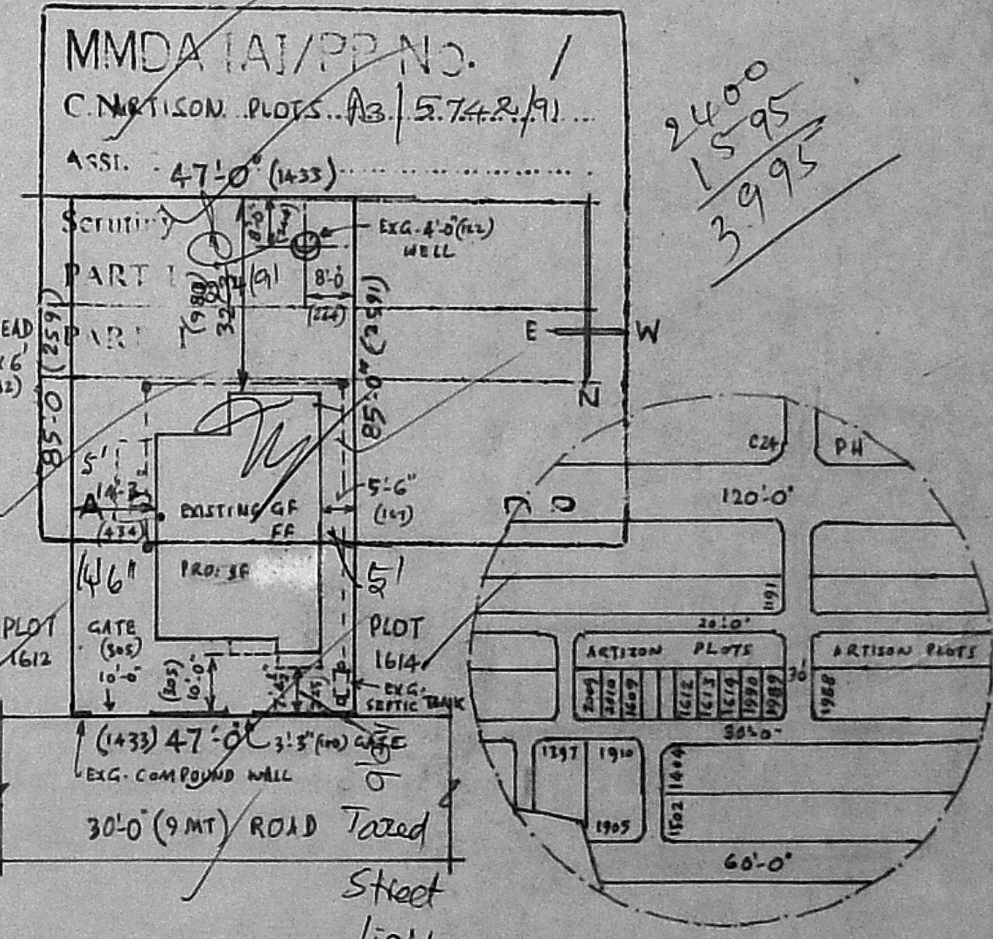 MMDA [A]/PP No. /
C.N ARTISON PLOTS A3/5742/91
ASSI.
47'-0" (1433)
Scrutiny
PART I
PART
2400
1595
3995
EXG. 4'-0" (122)
WELL
8'-0"
8'-0
(244)
32'-2
(980)
85'-0 (2591)
85'-0" (2591)
EAD
E
W
N
5'
14'-3
(434)
A
EXISTING GF
FF
PRO: SF
5'-6"
(167)
14'6"
5'
PLOT
1612
GATE
(305)
10'-0"
(305)
10'-0"
PLOT
1614
EXG.
SEPTIC TANK
(1433) 47'-0"
3'-3" (100) GATE
EXG. COMPOUND WALL
30'-0" (9 MT) ROAD
Tared
Street
C24
PH
120'-0"
1191
20'-0"
ARTIZON PLOTS
ARTISON PLOTS
2009
2010
1609
1612
1613
1614
1990
1989
30'
1988
30'-0-
1397
1910
1905
1404
1502
60'-0"